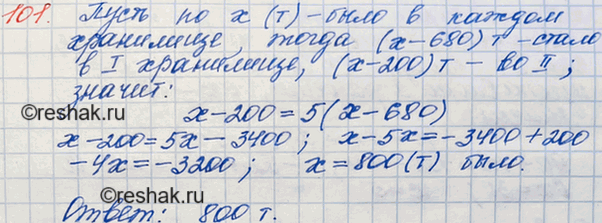 101. Пусть по x (т) - было в каждом
хранилище, тогда (x-680) т - стало
в I хранилище, (x-200) т - во II;
значит:
x-200=5(x-680)
x-200=5x-3400; x-5x=-3400+200
-4x=-3200; x=800(т) было.
Ответ: 800 т.
©reshak.ru
©reshak.ru